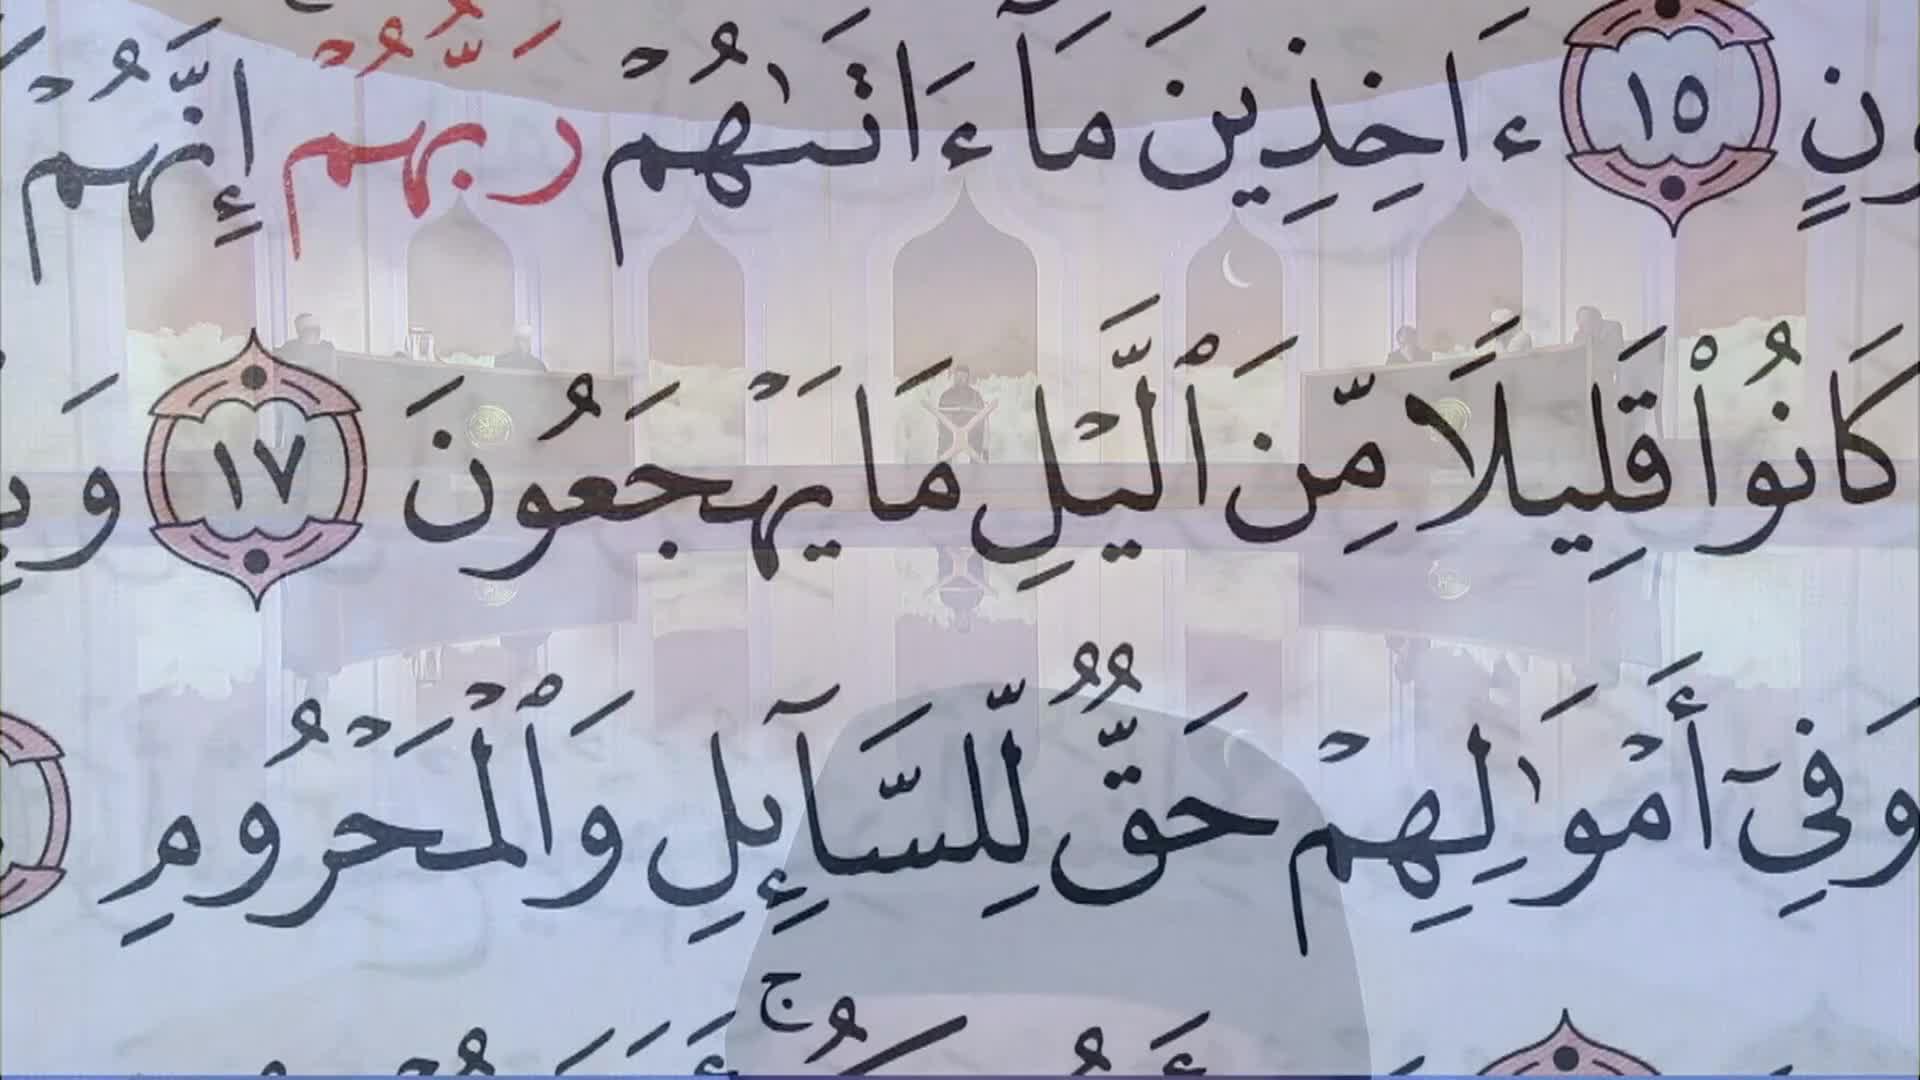 ١٥ ءَاخِذِينَ مَآ ءَاتَىٰهُمْ رَبُّهُمْ إِنَّهُمْ
كَانُوا۟ قَلِيلًا مِّنَ ٱلَّيْلِ مَا يَهْجَعُونَ ١٧
وَفِىٓ أَمْوَٰلِهِمْ حَقٌّ لِّلسَّآئِلِ وَٱلْمَحْرُومِ